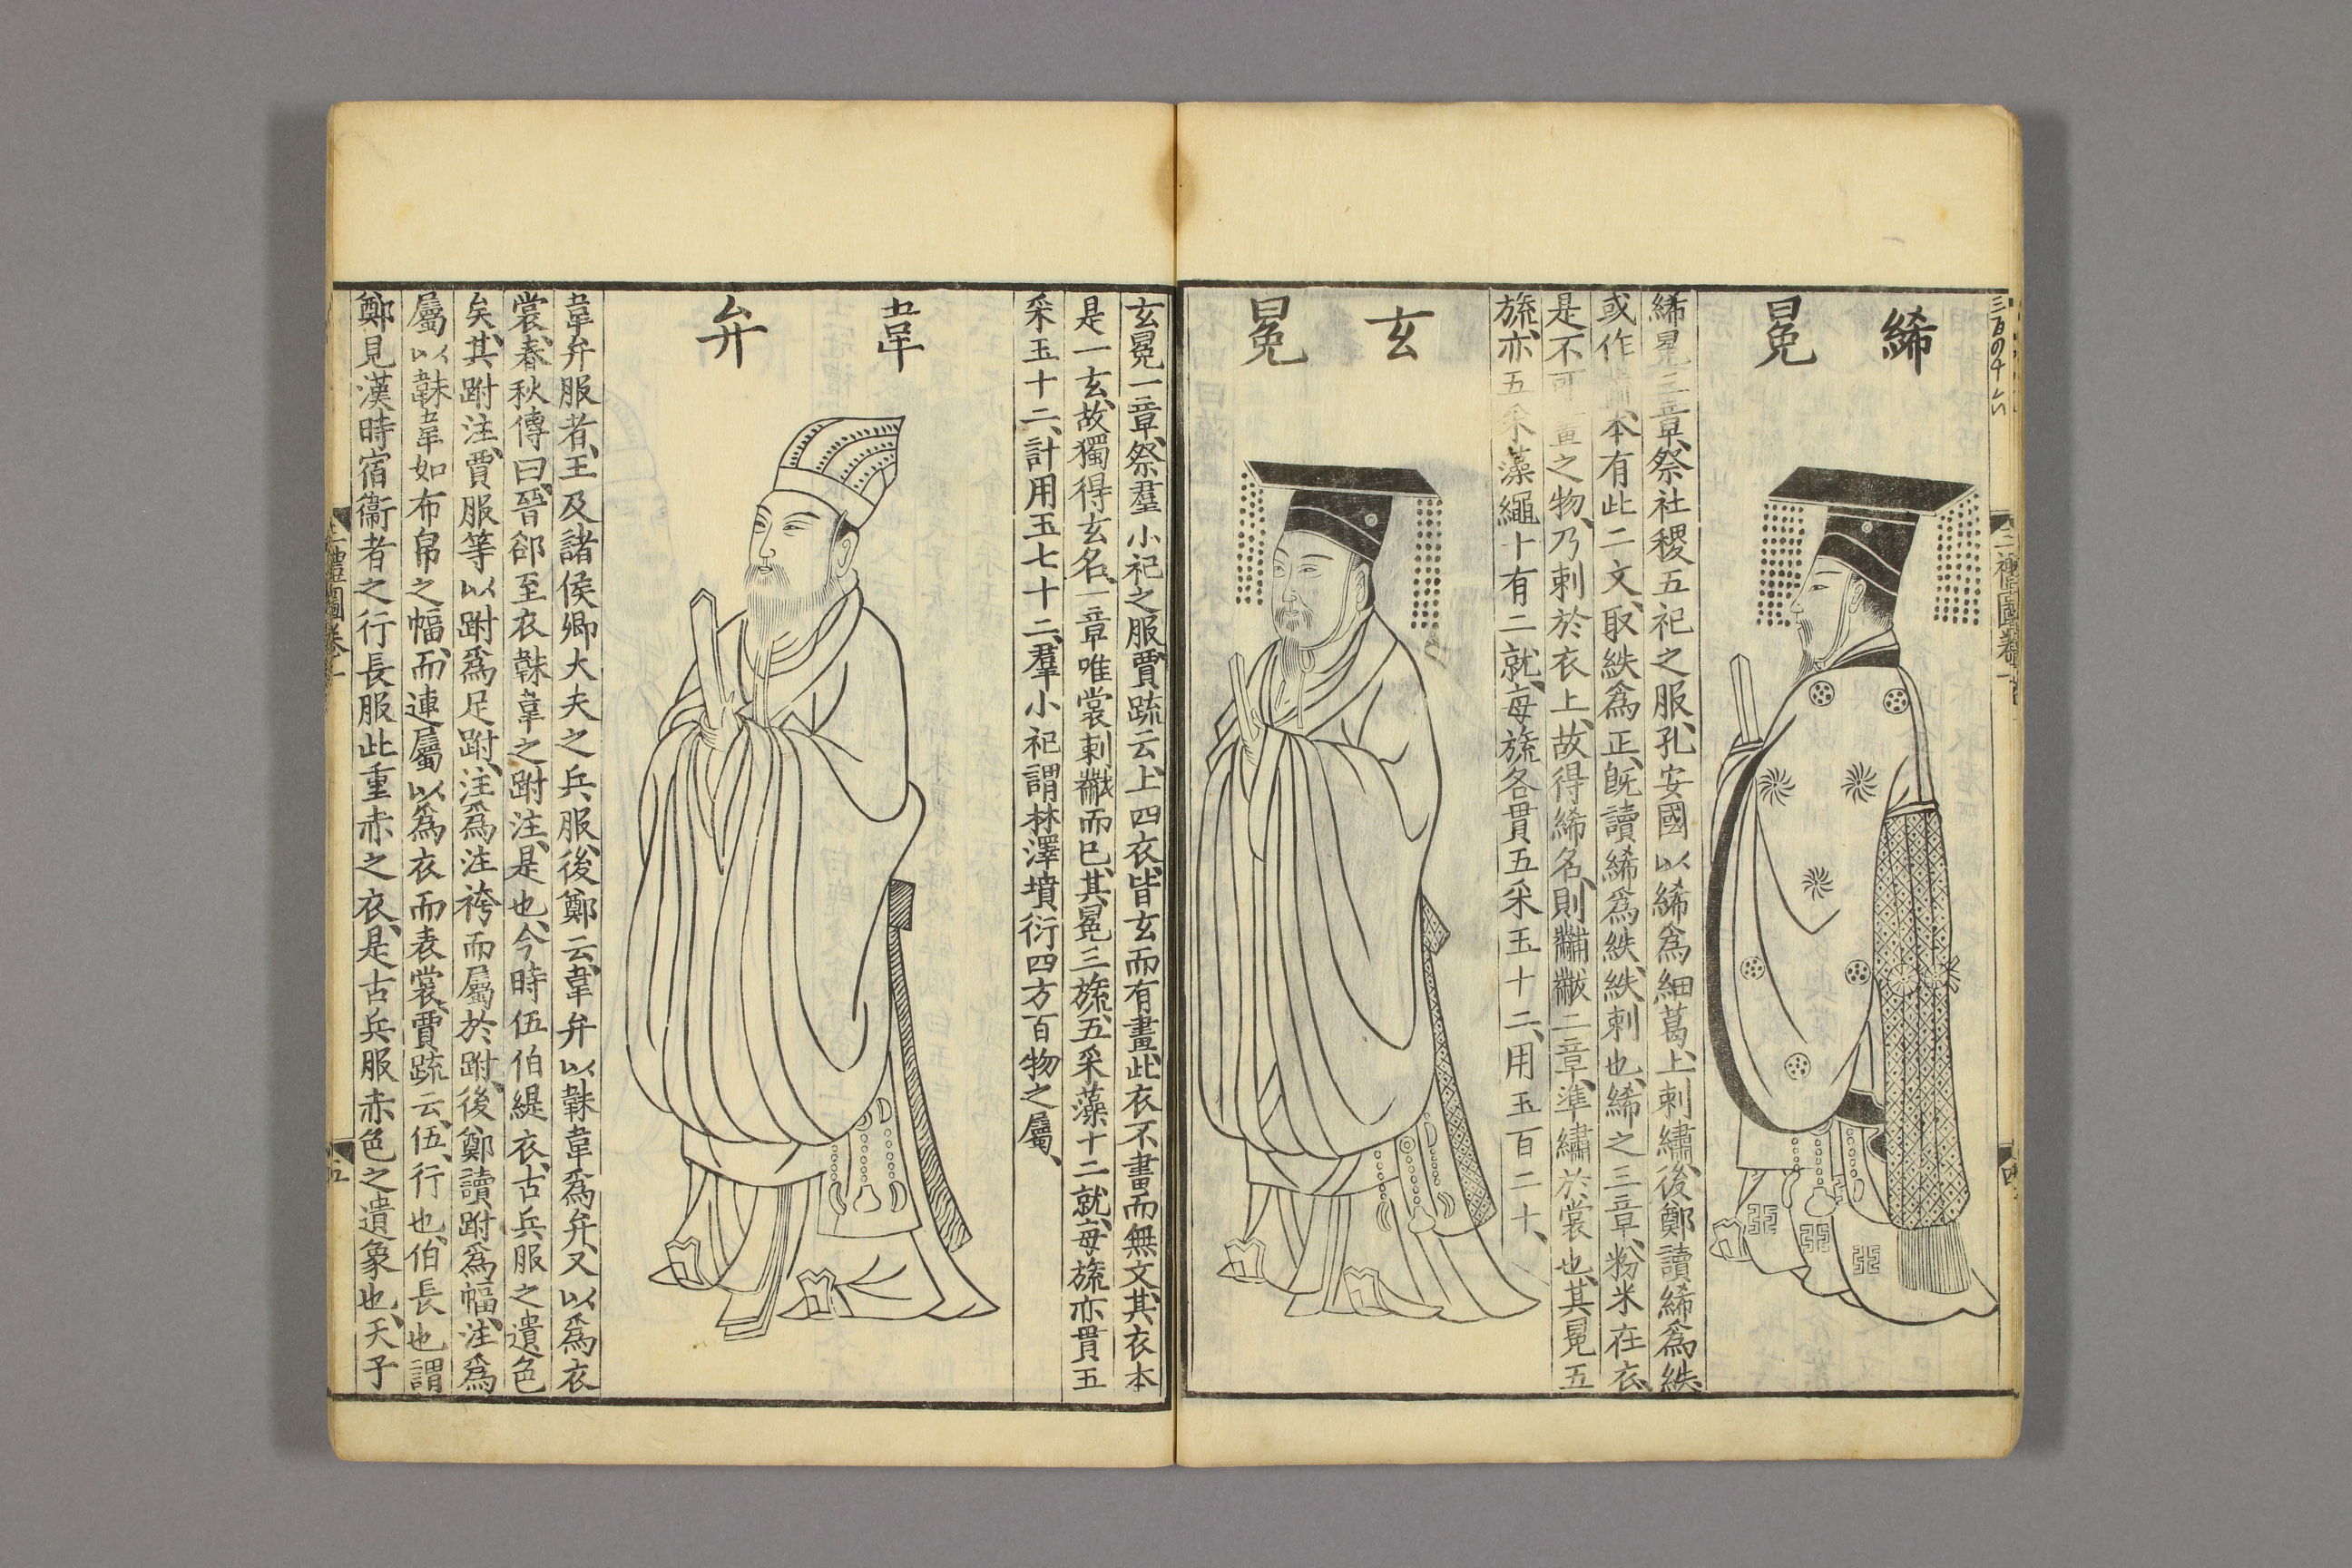 三百四十六
三禮圖卷一
四
絺冕
絺冕三章祭社稷五祀之服孔安國以絺爲細葛上刺繡後鄭讀絺爲紩
或作本有此二文取紩爲正既讀絺爲紩紩刺也絺之三章粉米在衣
是不可畫之物乃刺於衣上故得絺名則黼黻二章準繡於裳也其冕五
旒亦五采藻繩十有二就每旒各貫五采玉十二用玉百二十
玄冕
玄冕一章祭羣小祀之服賈疏云上四衣皆玄而有畫此衣不畫而無文其衣本
是一玄故獨得玄名一章唯裳刺黻而已其冕三旒五采藻十二就每旒亦貫五
采玉十二計用玉七十二羣小祀謂林澤墳衍四方百物之屬
韋弁
韋弁服者王及諸侯卿大夫之兵服後鄭云韋弁以韎韋爲弁又以爲衣
裳春秋傳曰晉郤至衣韎韋之跗注是也今時伍伯緹衣古兵服之遺色
矣其跗注賈服等以跗爲足跗注爲注袴而屬於跗後鄭讀跗爲幅注爲
屬以韎韋如布帛之幅而連屬以爲衣而表裳賈疏云伍行也伯長也謂
鄭見漢時宿衞者之行長服此重赤之衣是古兵服赤色之遺象也天子
三禮圖卷一
五